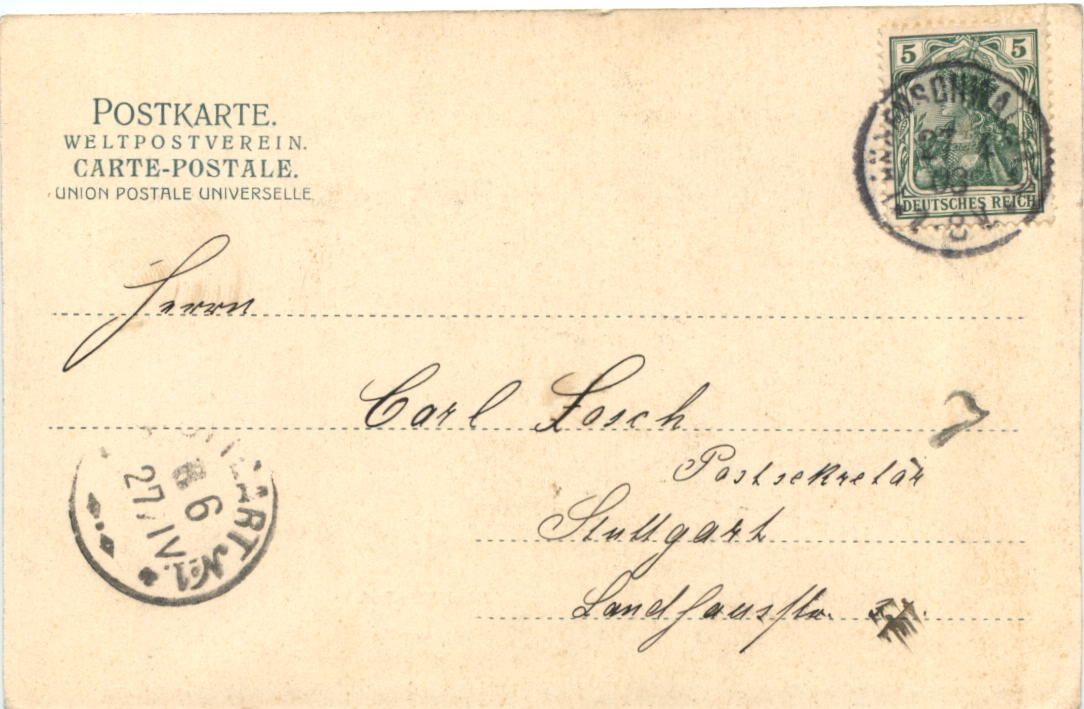 POSTKARTE.
WELTPOSTVEREIN.
CARTE-POSTALE.
UNION POSTALE UNIVERSELLE
5 5
DEUTSCHES REICH
27
03
Herrn
Carl Losch
Postsekretär
Stuttgart
Landhausstr.
STUTTGART. No 1.
6
27/IV.